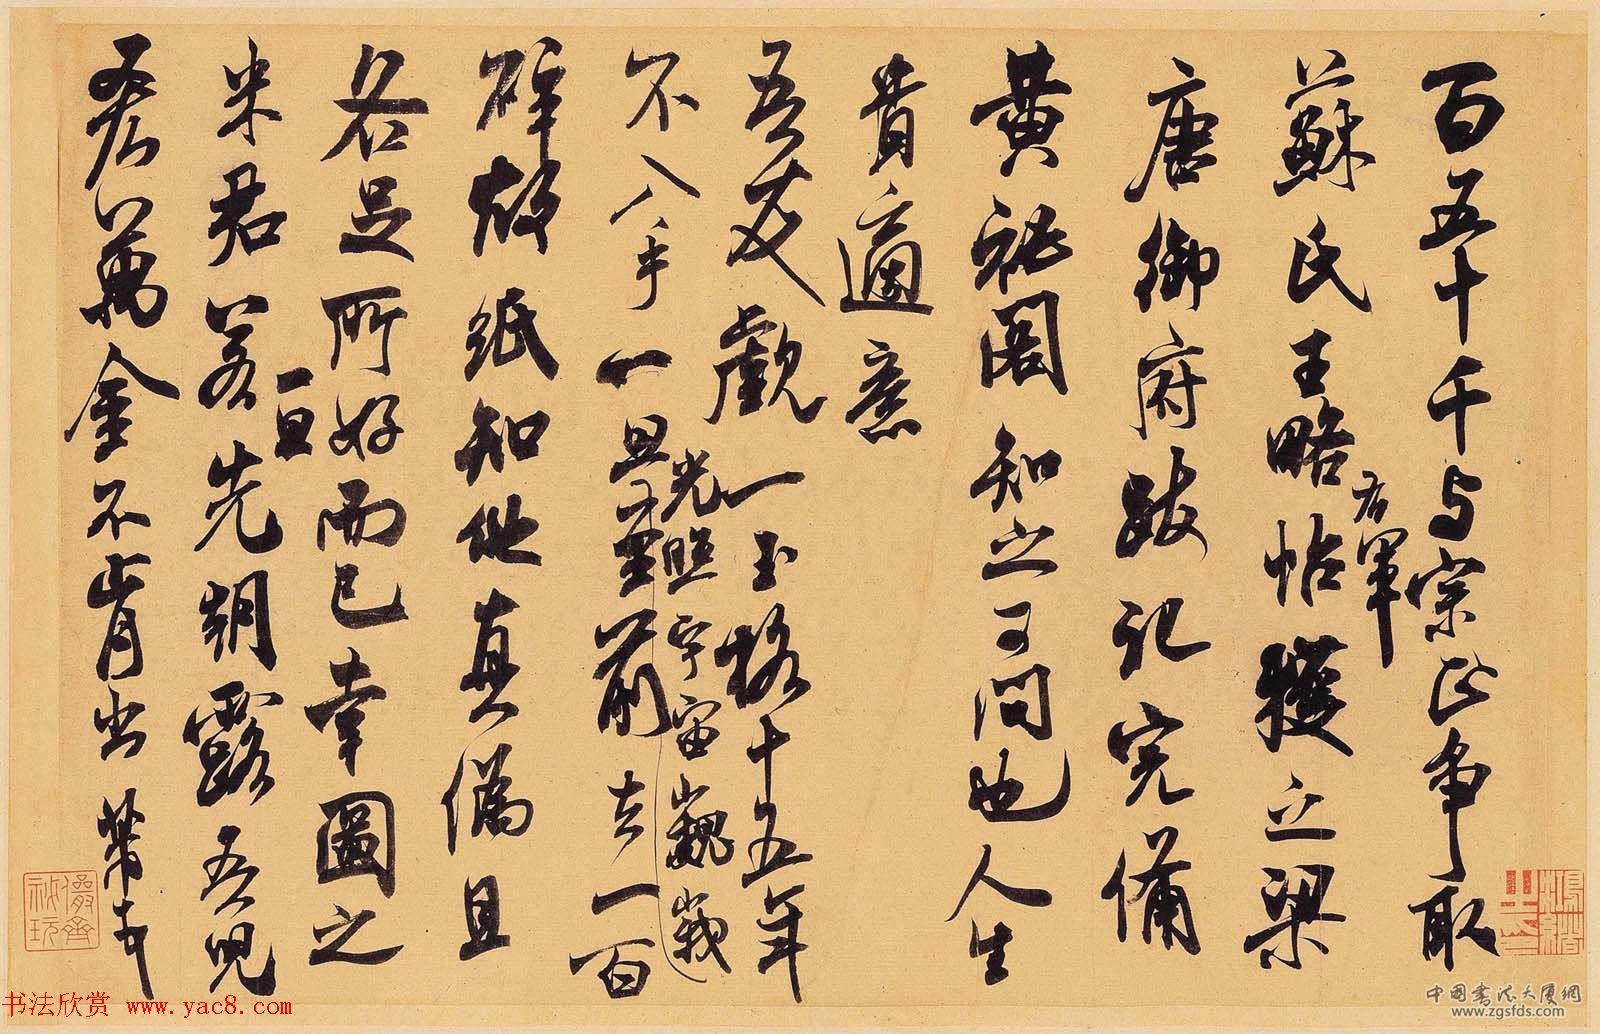 百五十千与宗正争取
蘇氏王略帖右軍獲之梁
唐御府跋記完備
黄秘閣知之可問也人生
貴適意
吾友覷一玉格十五年
不入手一旦光照宇宙巍峩至前去一百
碎故紙知他真偽且
各足所好而已幸圖之
米君若一旦先朝露吾兒
吝萬金不肯出芾頓首
儼齋秘玩
书法欣赏 www.yac8.com
中国書法大廈網
www.zgsfds.com